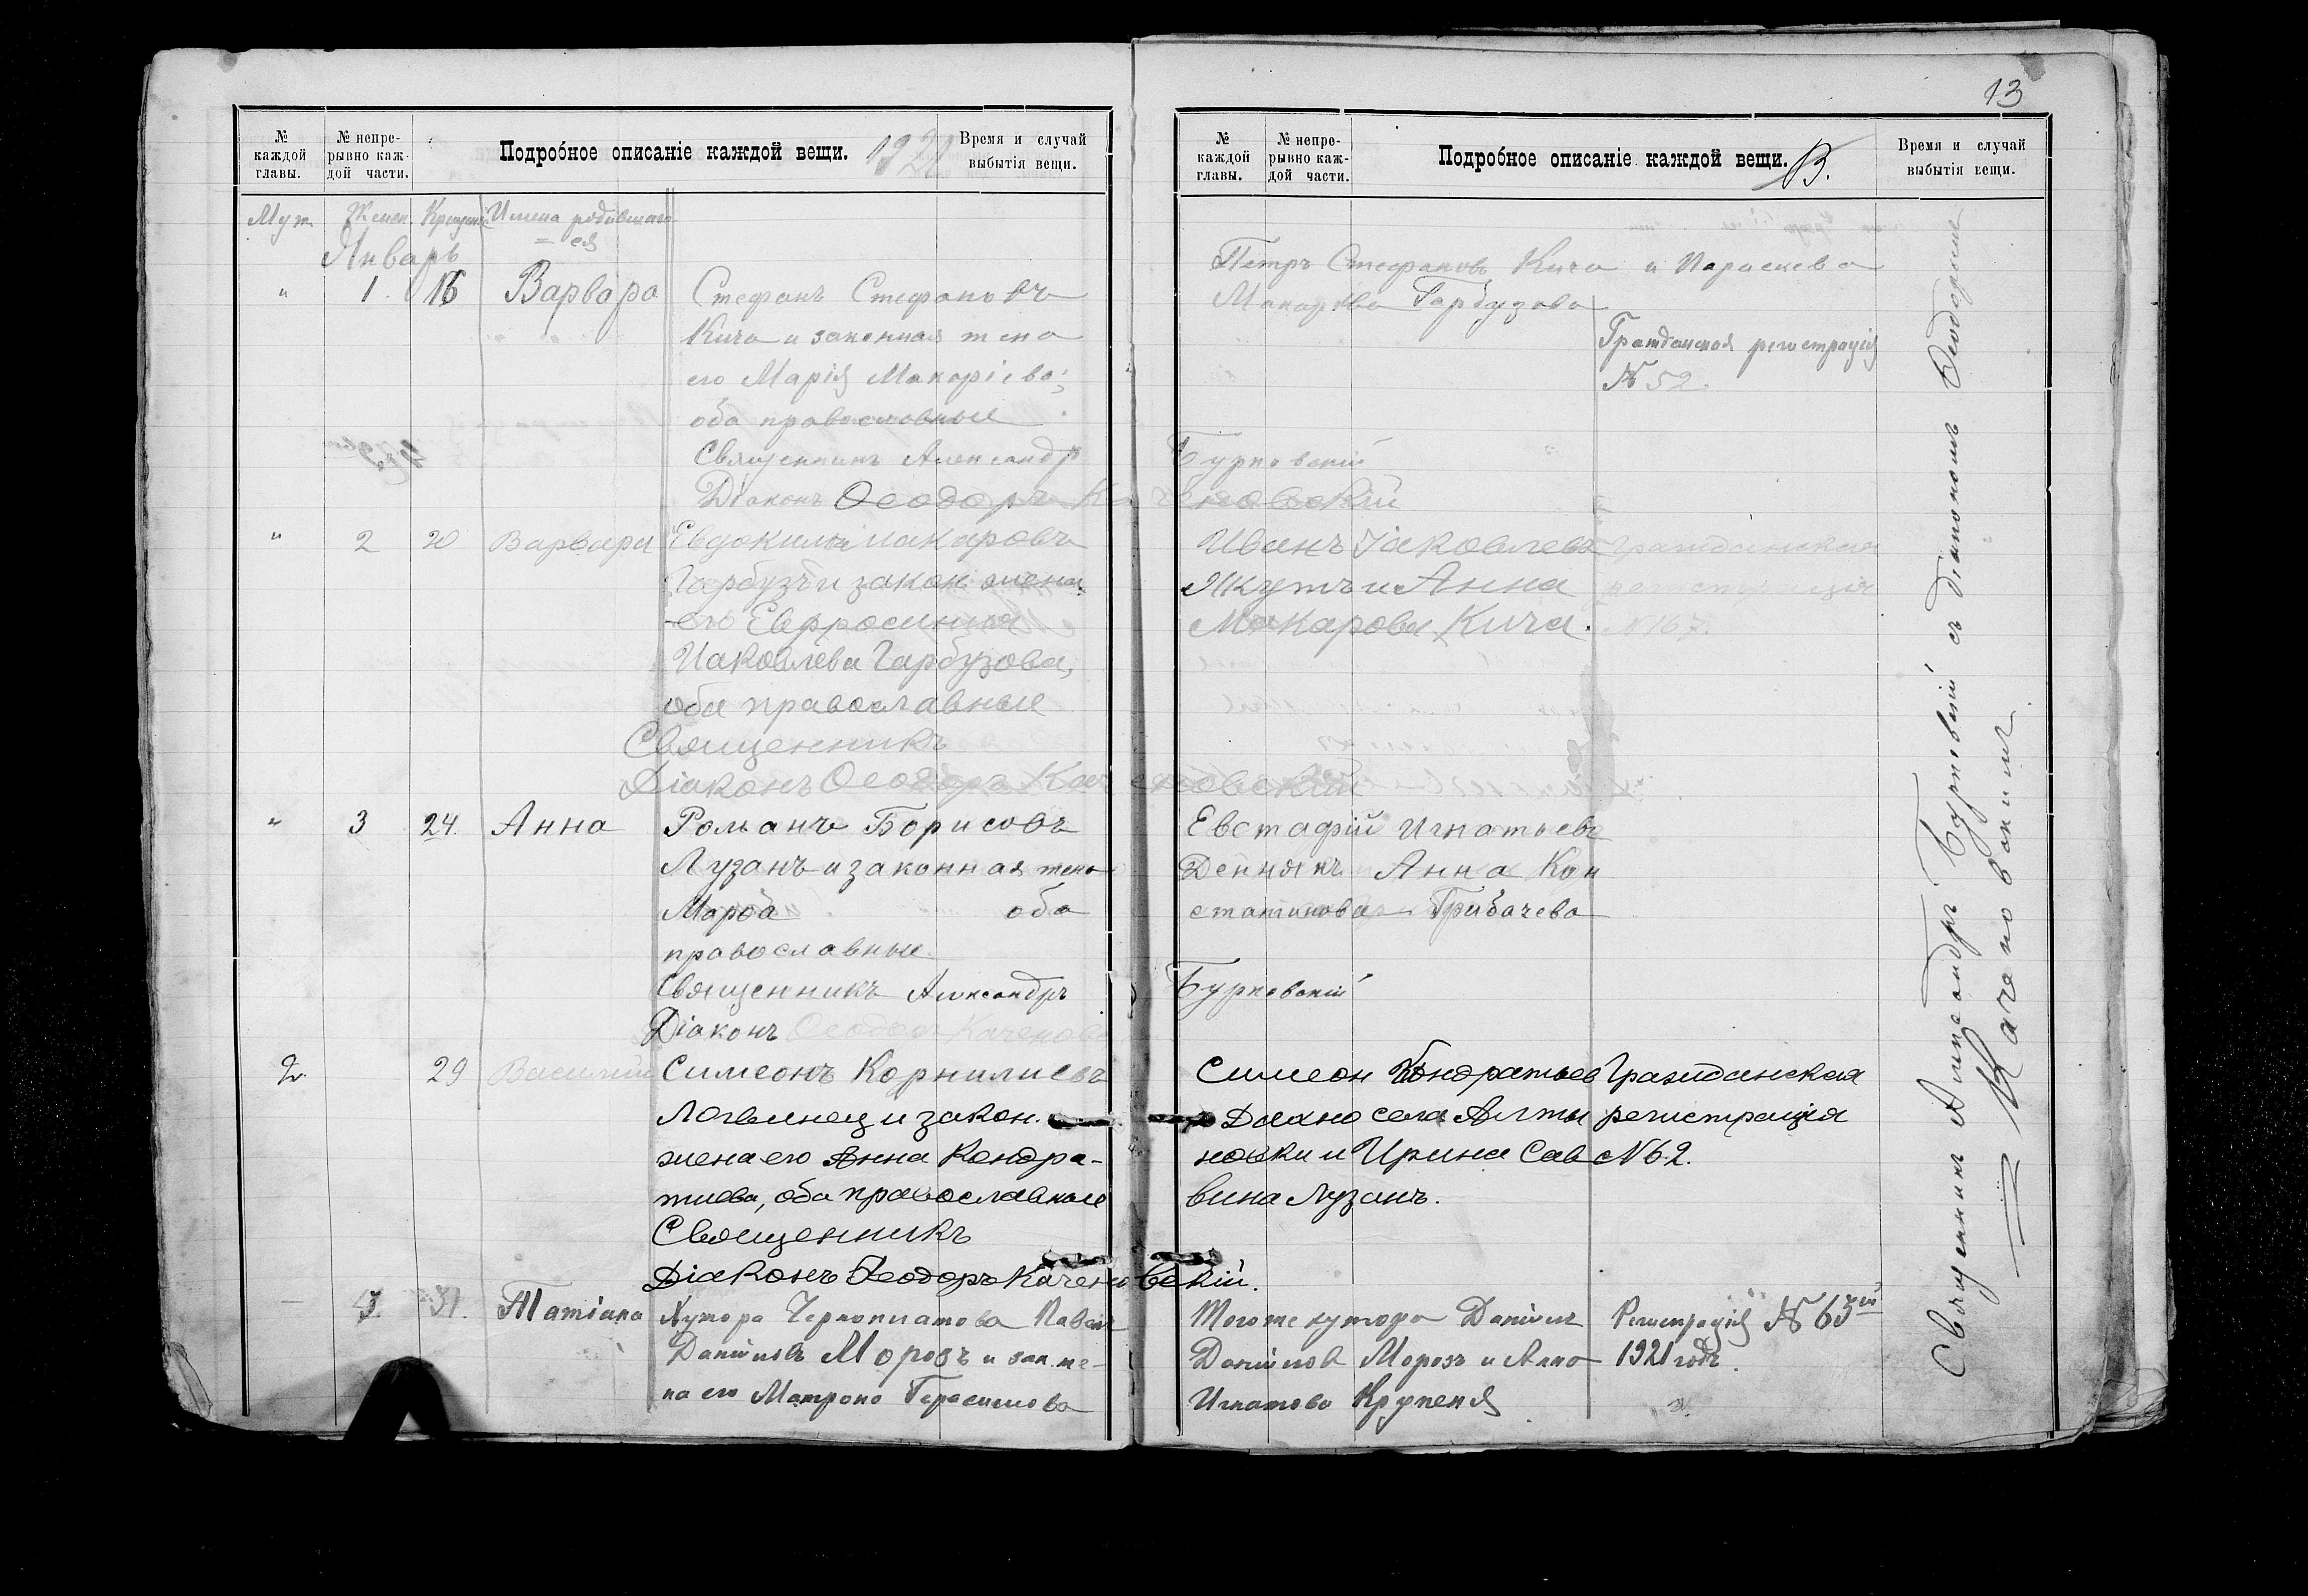 № каждой главы.
№ непрерывно каждой части.
Подробное описаніе каждой вещи. 1921
Время и случай выбытія вещи.
Муж. Женск. Крещенія Имена родившаго=ся
Январь
" 1. 16 Варвара Стефанъ Стефановъ
Кича и законная жена
его Марія Макаріева;
оба православные
Священникъ Александръ
Діаконъ Ѳеодоръ
" 2 20 Варвара Евдокимъ Макаровъ
Гарбузъ и закон. жена
его Евфросинія
Иаковлева Гарбузова,
оба православные
Священникъ
Діаконъ Ѳеодоръ Качановскій
" 3 24. Анна Романъ Борисовъ
Лузанъ и законная жена
Марфа оба
православные.
Священникъ Александръ
Діаконъ Ѳеодоръ
2. 29 Василій Симеонъ Корнилиевъ
Логвинец и закон.
жена его Анна Кондра-
тиева, оба православные
Священникъ
Діаконъ Ѳеодоръ Каченовскій.
31. Татіана Хутора Павелъ
Даніиловъ Морозъ и зак. же-
на его Матрона Герасимова
13
№ каждой главы.
№ непрерывно каждой части.
Подробное описаніе каждой вещи. В.
Время и случай выбытія вещи.
Петръ Стефановъ Кича и Параскева
Макарова Гарбузова
Гражданская регистрація
№ 52.
Бурковскій
Каченовскій
Иванъ Іаковлевъ Гражданская
и Анна регистрація
Макарова Кича. № 167.
Евстафій Игнатьевъ
Анна Кон
стантинова Грибачева
Бурковскій
Симеон Кондратьев Гражданская
Дахно села Алты регистрація
новки и Ирина Сав № 62.
вина Лузанъ.
Тогоже хутора Даніилъ Регистрація № 63й
Даніиловъ Морозъ и Анна 1921 годъ.
Игнатова Крупеня
Священникъ Александръ Бурковскій съ діакономъ Ѳеодоромъ
Каченовскимъ.